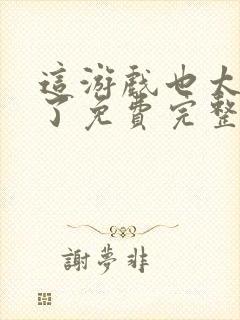 這游戲也太
了免費完整
謝夢非